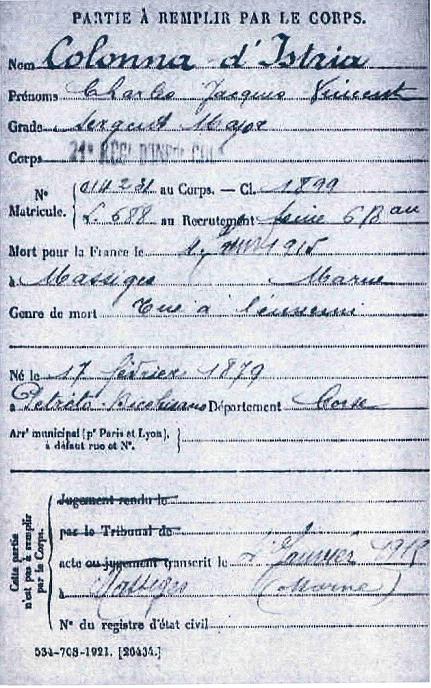 PARTIE À REMPLIR PAR LE CORPS.
Nom Colonna d'Istria
Prénoms Charles Jacques Vincent
Grade Sergent Major
Corps 21e
No Matricule. au Corps. — Cl. 1899
L 688 au Recrutement Seine 6 Bau
Mort pour la France le 1915
à Massiges Marne
Genre de mort Tué à l'ennemi
Né le 17 février 1879
à Petreto Bicchisano Département Corse
Arrt municipal (pr Paris et Lyon),
à défaut rue et No.
Cette partie n'est pas à remplir par le Corps.
Jugement rendu le
par le Tribunal de
acte ou jugement transcrit le Janvier
à Massiges (Marne)
No du registre d'état civil
534-708-1921. [26434.]